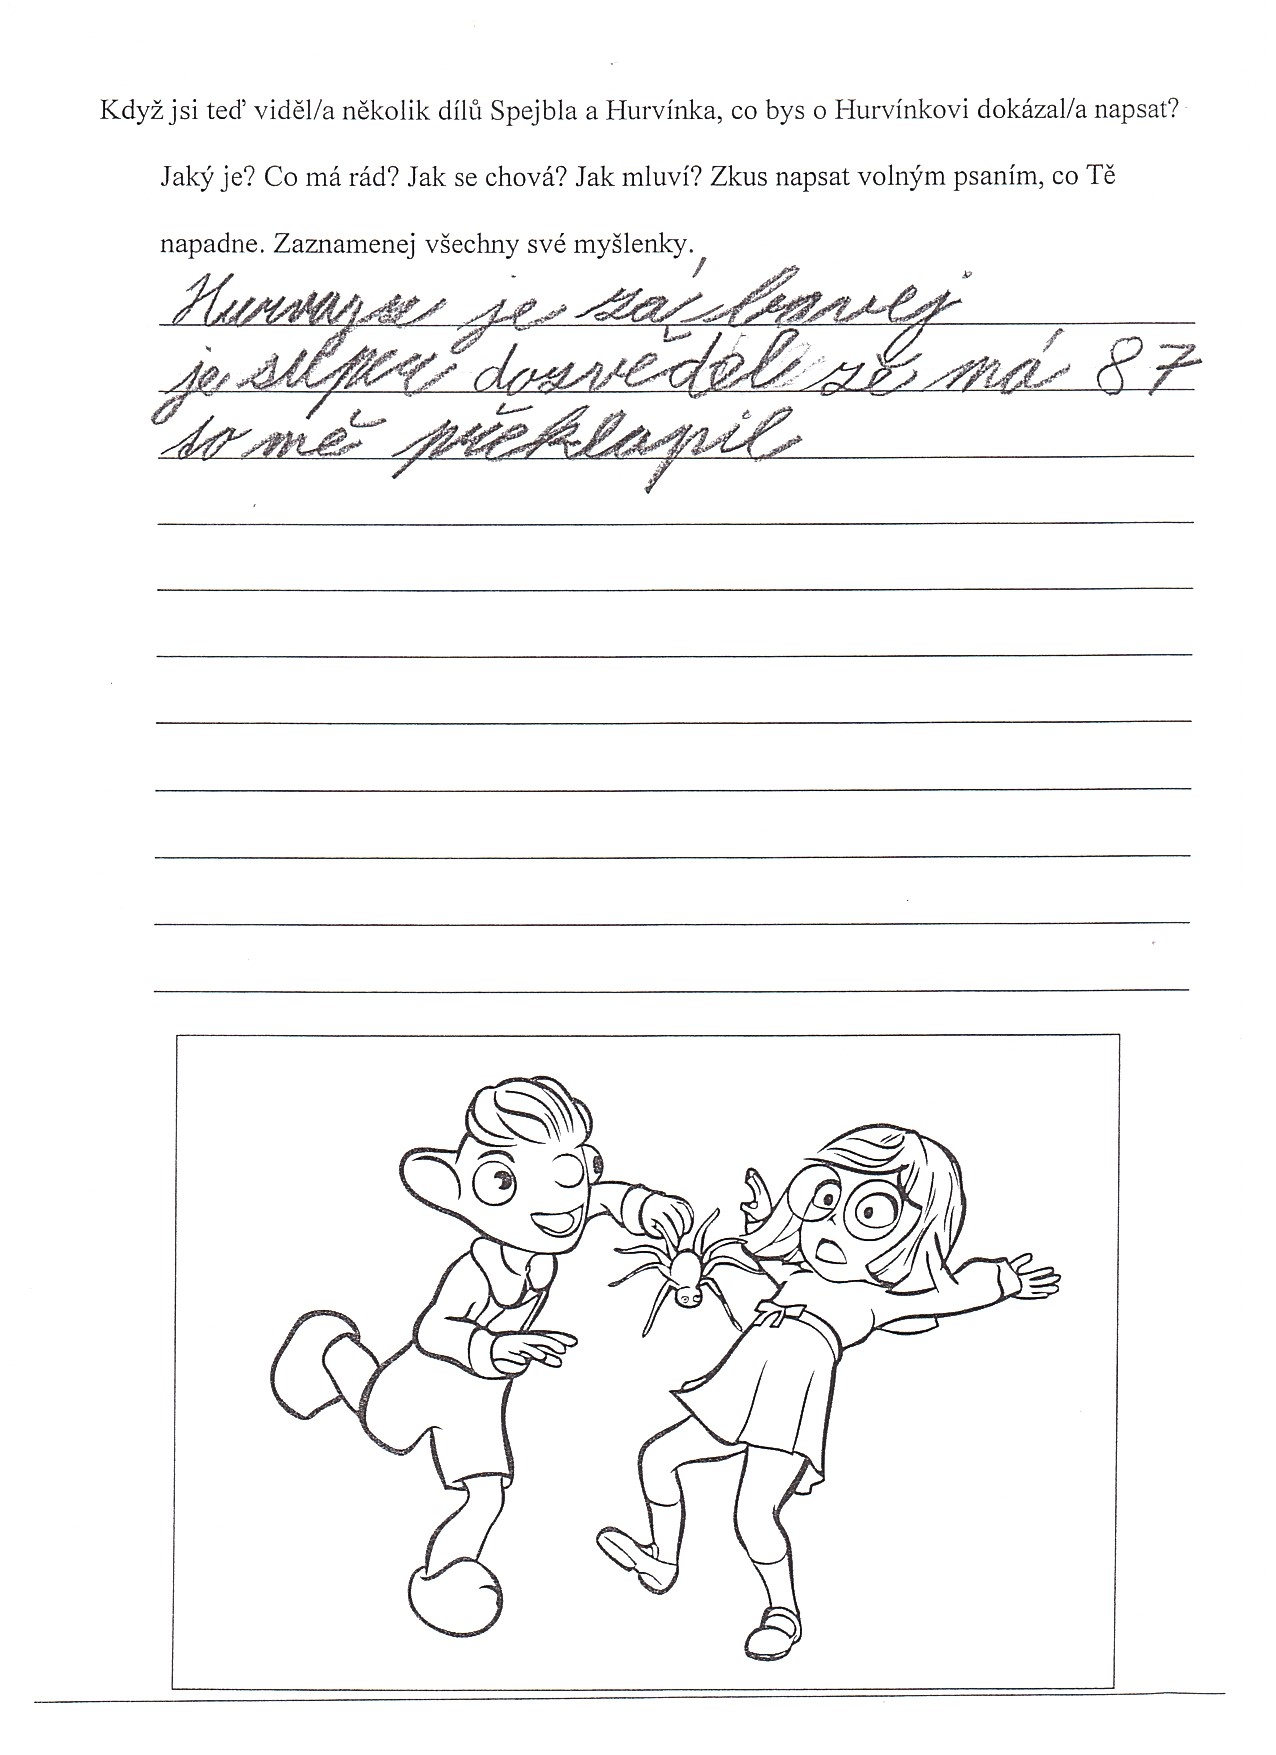 Když jsi teď viděl/a několik dílů Spejbla a Hurvínka, co bys o Hurvínkovi dokázal/a napsat?
Jaký je? Co má rád? Jak se chová? Jak mluví? Zkus napsat volným psaním, co Tě
napadne. Zaznamenej všechny své myšlenky.
je zábavnej
je super dozvěděl že má 87
to mě překlapil